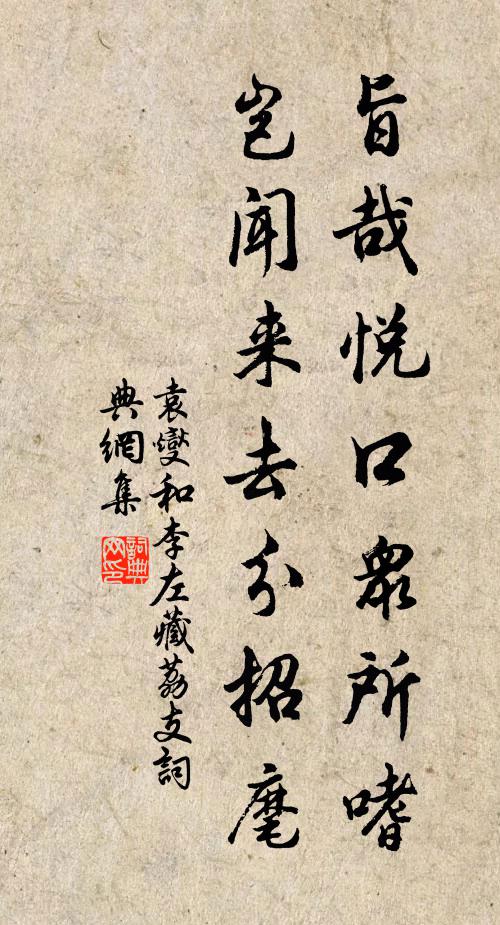 旨哉悦口衆所嗜
岂闻来去分招麾
袁燮和李左藏荔支詞
典網集
詞典網印